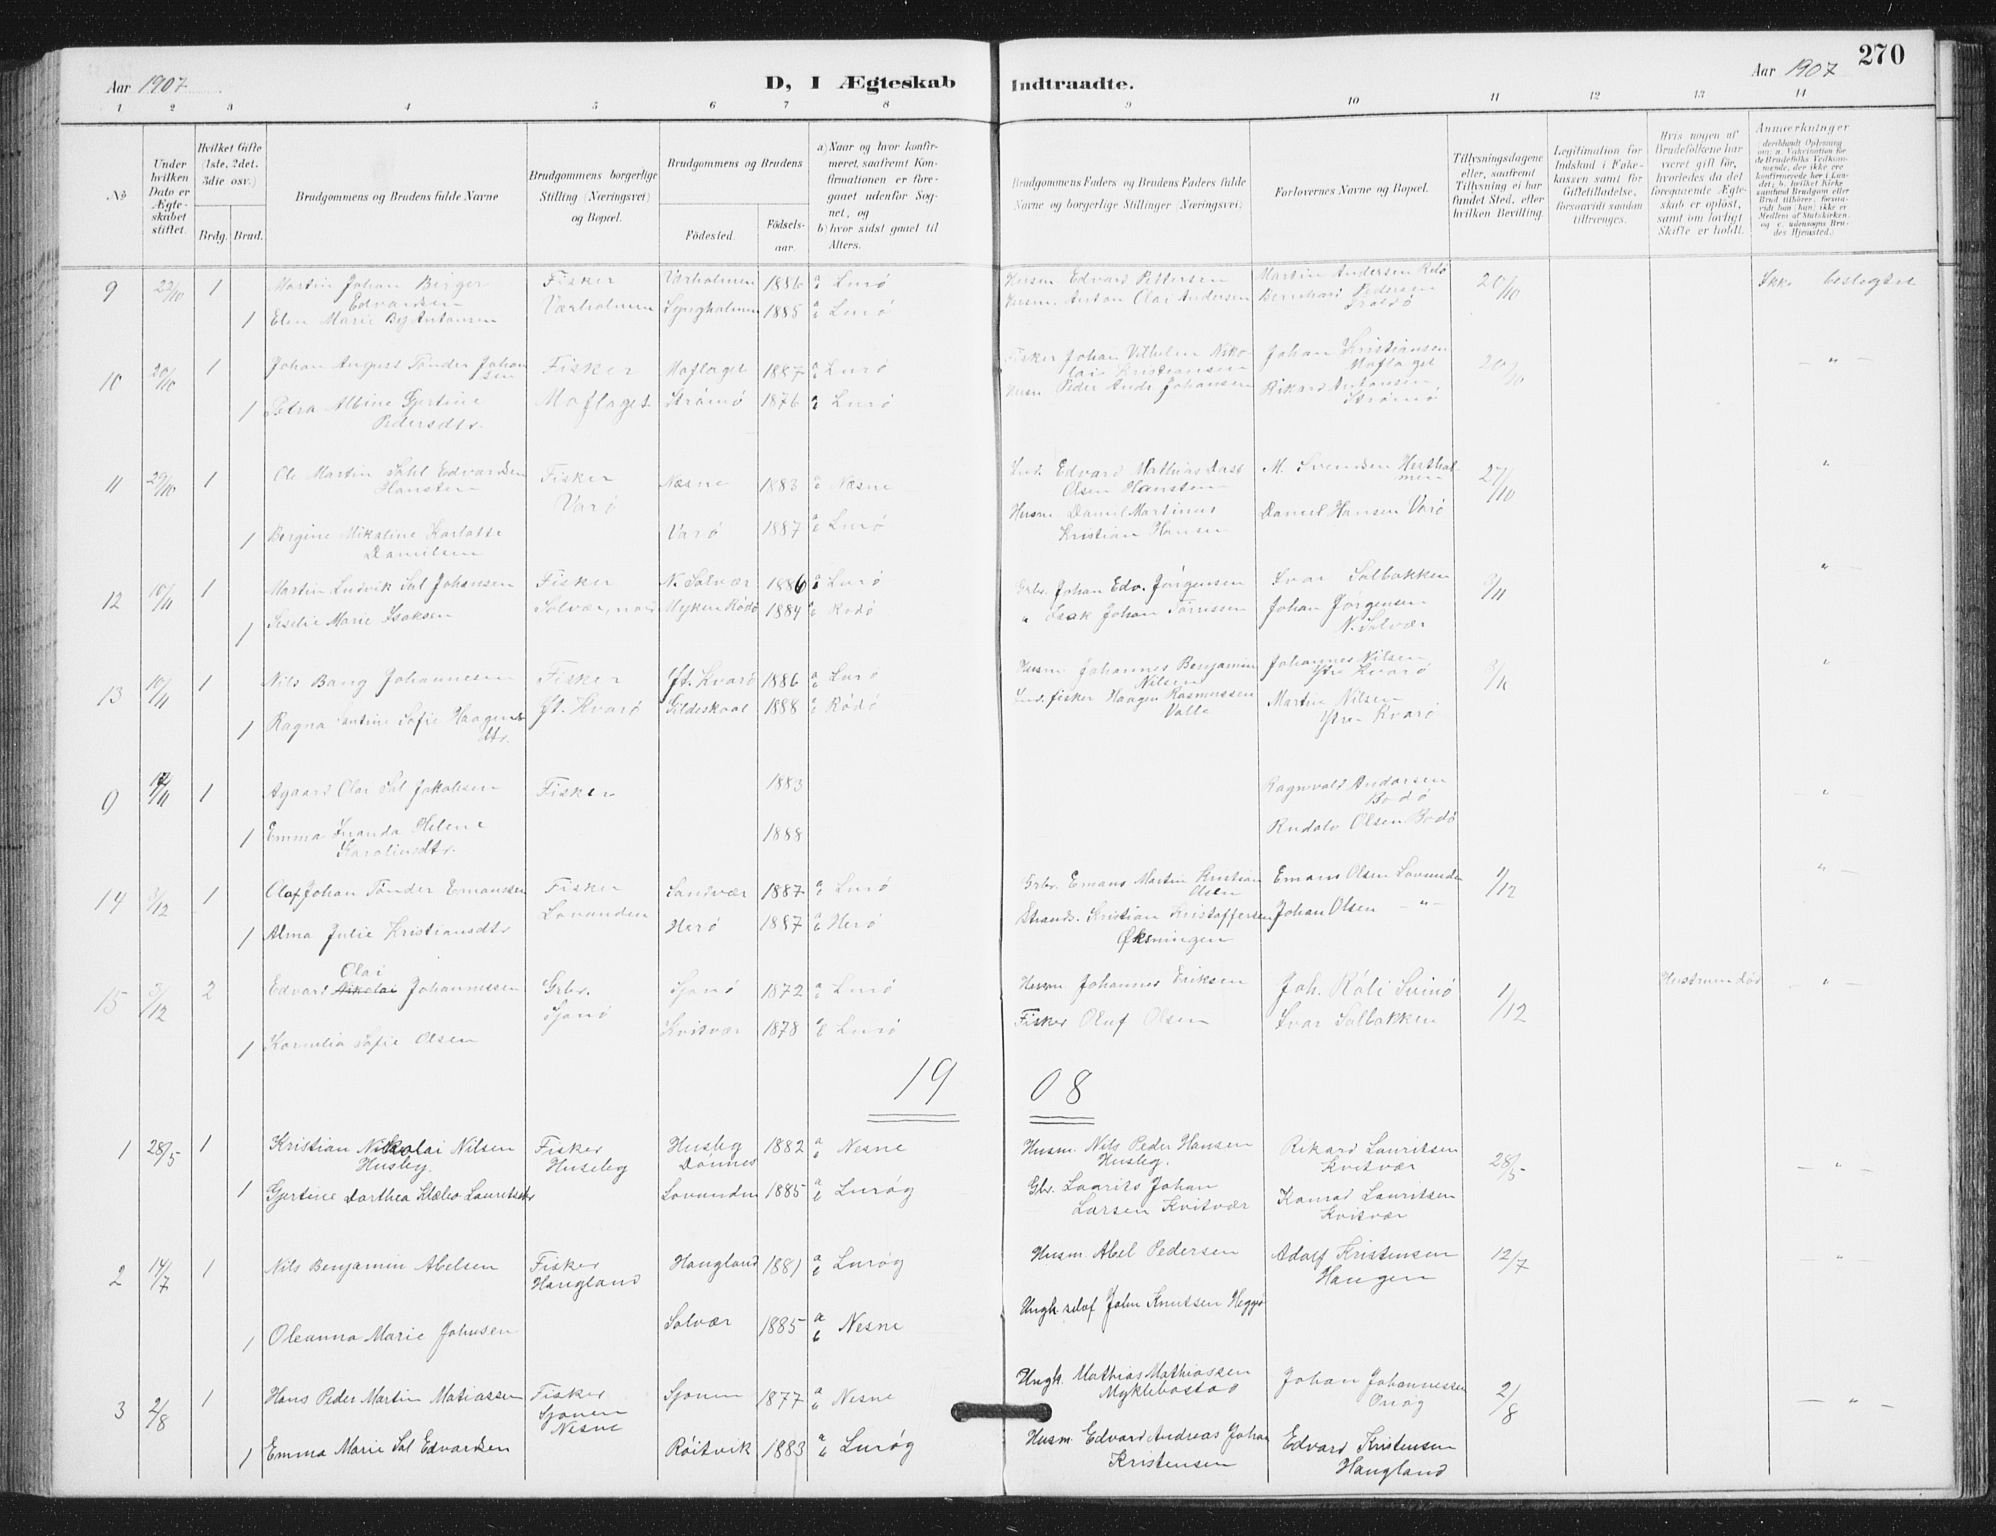 270
Aar 1907
D, I Ægteskab Indtraadte.
Aar 1907
1 2 3 4 5 6 7 8 9 10 11 12 13 14
No
Under hvilken Dato er Ægte-skabet stiftet.
Hvilket Gifte (1ste, 2det. 3die osv.)
Brdg. Brud.
Brudgommens og Brudens fulde Navne
Brudgommens borgerlige Stilling (Næringsvei) og Bopæl.
Brudgommens og Brudens
Fødested.
Fødsels-aar.
a) Naar og hvor konfir-meret, saafremt Kon-firmationen er fore-gaaet udenfor Sog-net, og
b) hvor sidst gaaet til Alters.
Brudgommens Faders og Brudens Faders fulde Navne og borgerlige Stillinger (Næringsvei)
Forlovernes Navne og Bopæl.
Tillysningsdagene eller, saafremt Tillysning ei har fundet Sted, efter hvilken Bevilling.
Legitimation for Indskud i Enke-kassen samt for Giftetilladelse, forsaavidt saadan tiltrænges.
Hvis nogen af Brudefolkene har været gift før, hvorledes da det foregaaende Ægte-skab er opløst, samt om lovligt Skifte er holdt.
Anmærkninger
9 22/10 1 Martin Johan Birger Fisker Varholmen 1886 a b Lurø Husm. Edvard Pettersen Martin Andersen Rødø 20/10 Ikke beslegtet
Edvardsen Værholmen
1 Elen Marie Antonsen Lyngholmen 1885 a b Lurø Husm. Anton Olai Andersen Bernhard Pedersen
10 20/10 1 Johan August Tønder Johan Fisker Moflaget 1887 a b Lurø Fisker Johan Vilhelm Niko- Johan Kristiansen 20/10 — " —
sen Moflaget lai Kristiansen Moflaget
1 Petra Albine Gjertine Strømø 1876 a Lurø Husm. Peder Andr Johansen Rikard Antonsen,
Pedersdtr. Strømø
11 29/10 1 Ole Martin Dahl Edvardsen Fisker Nesne 1883 a b Nesne Edvard Mathias Dass M. Svendsen Hesthol- 27/10 "
Hansten Varø Olsen Hansten men
1 Bergine Mikaline Karlotte Varø 1887 a b Lurø Husm Daniel Martinus Daniel Hansen Varø
Danielsen Kristian Hansen
12 10/11 1 Martin Ludvik Sol Johansen Fisker N. Solvær 1886 a b Lurø Grbr. Johan Edv. Jørgensen Ivar Solbakken 3/11 "
1 Seselie Marie Isaksen Solvær, nord Myken Rødø 1884 a b Rødø " Isak Johan Tørrissen Johan Jørgensen
N. Solvær
13 10/11 1 Nils Bang Johannesen Fisker Yt. Kvarø 1886 a b Lurø Husm. Johannes Benjamin Johannes Nilsen 3/11 "
Yt. Kvarø Nilsen Ytre Kvarø
1 Ragna Santine Sofie Haagens Gildeskaal 1888 a b Rødø Ind. fisker Haagen Rasmussen Martin Nilsen
dtr. Valle Ytre Kvarø
9 1 Agaard Olai Sol Jakobsen Fisker 1883 Ragnvald Andersen — " —
Bodø
1 Emma Helene 1888 Rudolv Olsen Bodø
Karolinsdtr.
14 3/12 1 Olaf Johan Tønder Emanssen Fisker Sandvær 1887 a b Lurø Grbr. Emans Martin Kristian Emans Olsen Lovunden 1/12 " —
Lovunden Olsen
1 Alma Julie Kristiansdtr Herø 1887 a b Herø Strands. Kristian Kristoffersen Johan Olsen — " —
Øksningen
Olai
15 3/12 2 Edvard Nikolai Johannessen Grbr. Sjonø 1872 a b Lurø Husm Johannes Eriksen Joh. Røli Svinø 1/12 Hustruen død — " —
Sjonø
1 Kornelia Sofie Olsen Kvitvær 1878 a b Lurø Fisker Oluf Olsen Ivar Solbakken
19 08
1 28/5 1 Kristian Nikolai Nilsen Fisker Husby 1882 a b Nesne Husm. Nils Peder Hansen Rikard Lauritsen 28/5 — " —
Husby. Huseby Dønnes Husby. Kvitvær
1 Gjertine Dorthea Klæbo Lauritsdtr Lovunden 1885 a b Lurøy Gbr. Laurits Johan Konrad Lauritsen
Larsen Kvitvær Kvitvær
2 14/7 1 Nils Benjamin Abelsen Fisker Haugland 1881 a b Lurøy Husm. Abel Pedersen Adolf Kristensen 12/7 — " —
Haugland Haugen
1 Oleanna Marie Johnsen Solvær 1885 a b Nesne Ungk. selvf John Knutsen
3 2/8 1 Hans Peder Martin Matiassen Fisker Sjonen 1877 a b Nesne Ungk. Mathias Mathiassen Johan Johannessen 2/8 — " —
Sjonen Myklebostad
Nesne
1 Emma Marie Sol Edvardsen Røitvik 1883 a b Lurøy Husm. Edvard Andreas Johan Edvard Kristensen
Kristensen Haugland